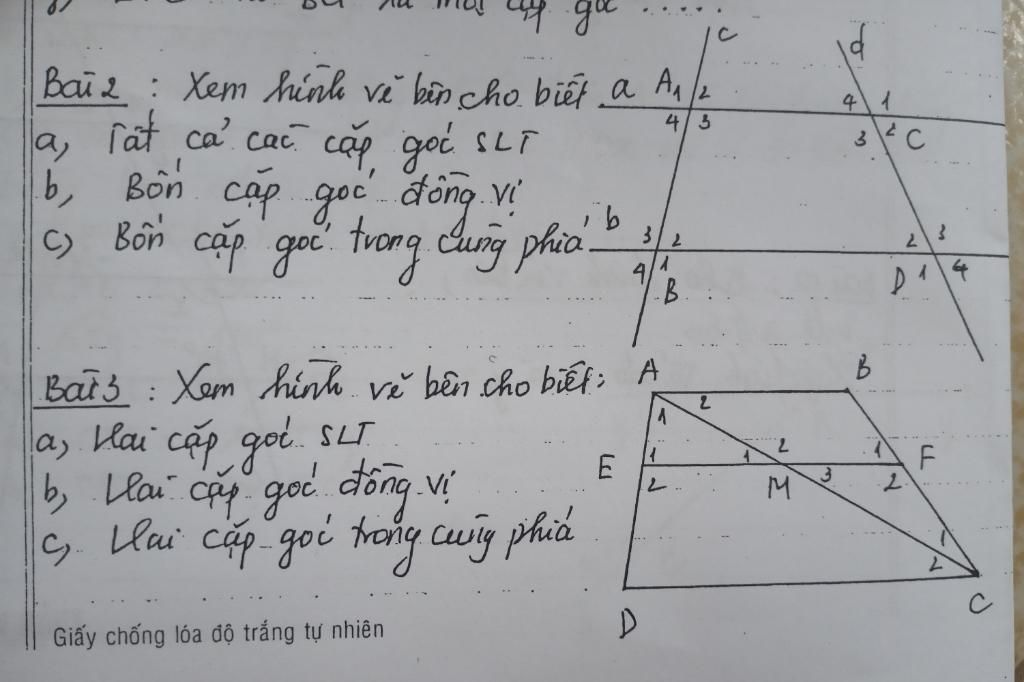 Bài 2 : Xem hình vẽ bên cho biết
a, Tất cả các cặp góc SLT
b, Bốn cặp góc đồng vị
c) Bốn cặp góc trong cùng phía
a A 1 2 4 3 c
d 4 1 3 2 C
b 3 2 4 1 B
2 3 1 4 D
Bài 3 : Xem hình vẽ bên cho biết:
a, Hai cặp góc SLT
b, Hai cặp góc đồng vị
c, Hai cặp góc trong cùng phía
A 1 2 B
E 1 2 1 2 3 M 1 2 F
D 1 2 C
Giấy chống lóa độ trắng tự nhiên